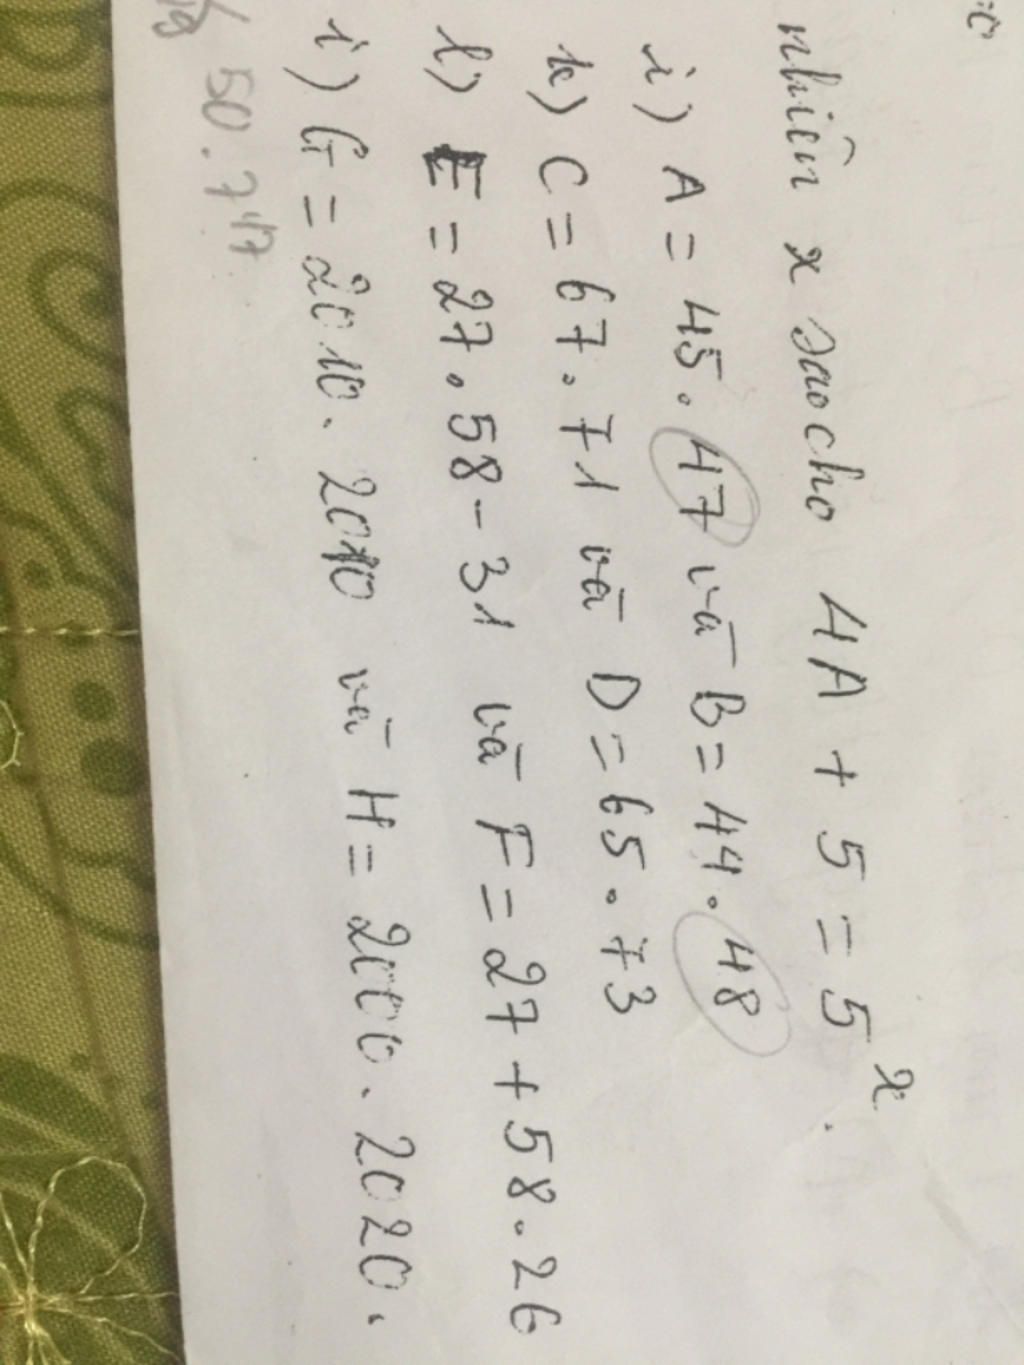 nhiên x sao cho 4A + 5 = 5ˣ.
i) A = 45.47 và B = 44.48
k) C = 67.71 và D = 65.73
l) E = 27.58 - 31 và F = 27 + 58.26
i) G = 2010.2010 và H = 2000.2020.
50.7⁴¹⁷